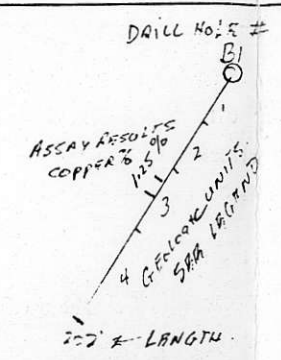 DRILL HOLE #
B1
1
ASSAY RESULTS
COPPER %
1.25 %
2
3
4
GEOLOGIC UNITS.
SEE LEGAND
LENGTH.